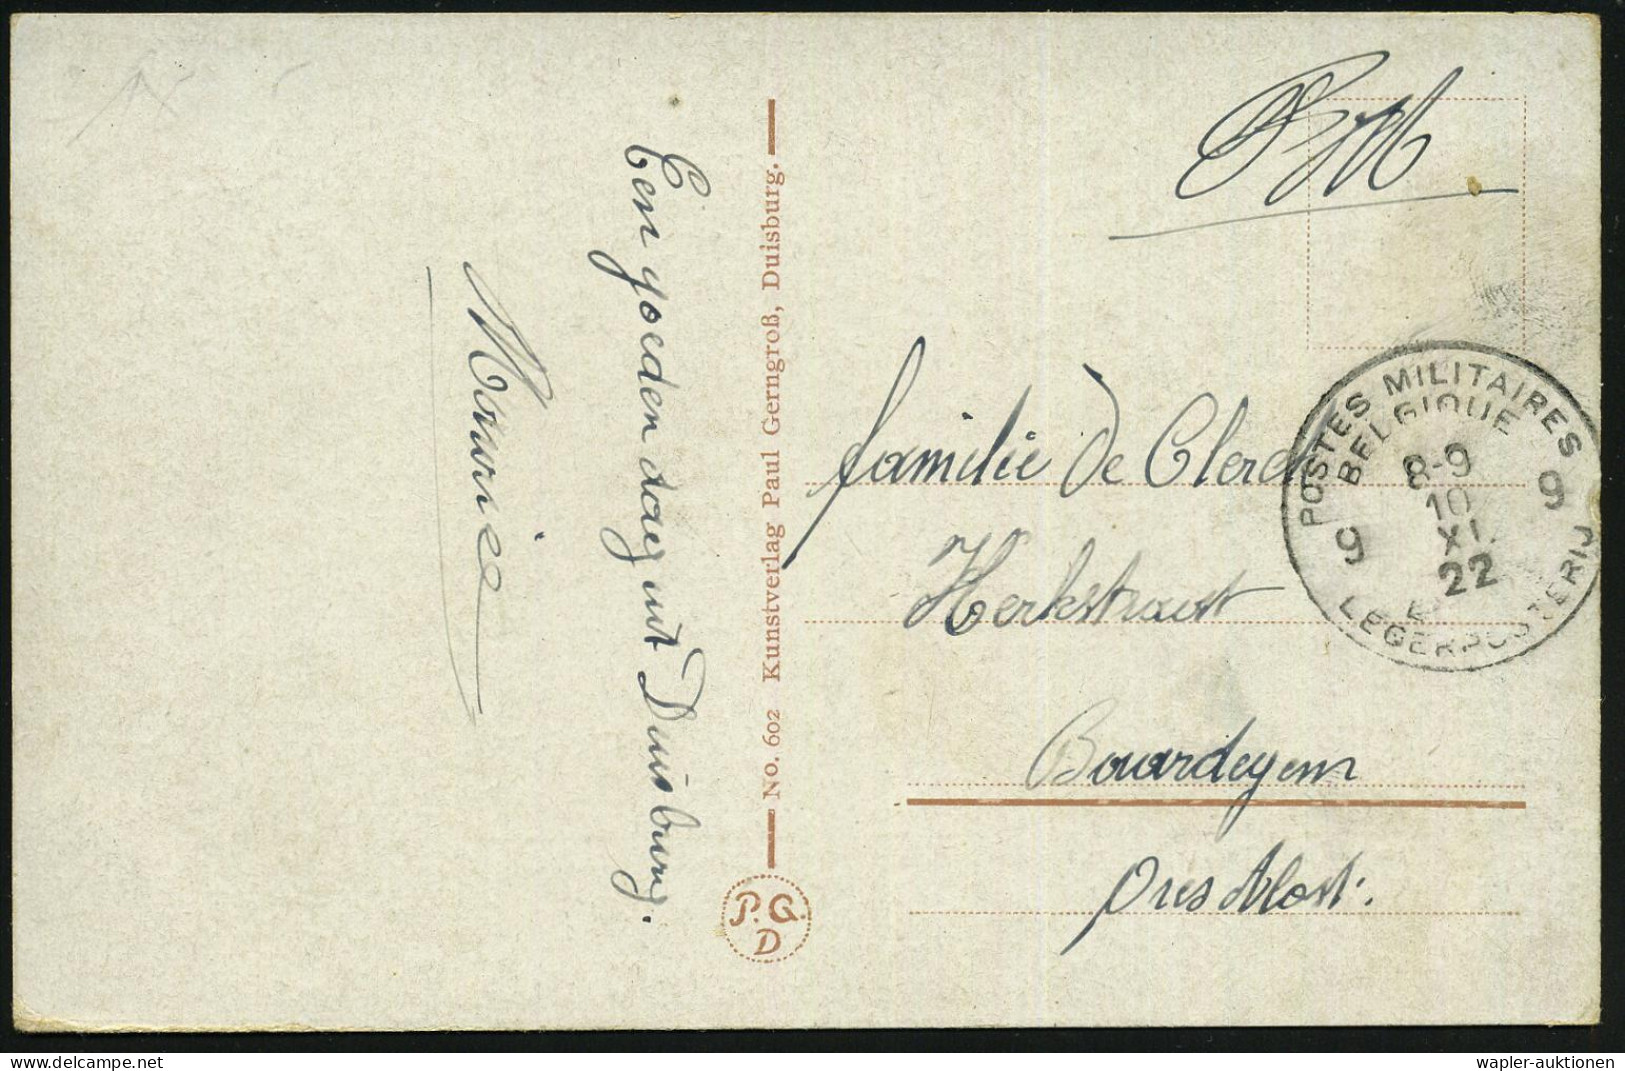 Een goeden dag uit Duisburg.
Maurice
No. 602 Kunstverlag Paul Gerngroß, Duisburg.
P.G.
D
familie De Clerck
Kerkstraat
Bavardegem
près Alost.
POSTES MILITAIRES
BELGIQUE
8-9
10
XI.
22
9 9
LEGERPOSTERIJ
wapler-auktionen